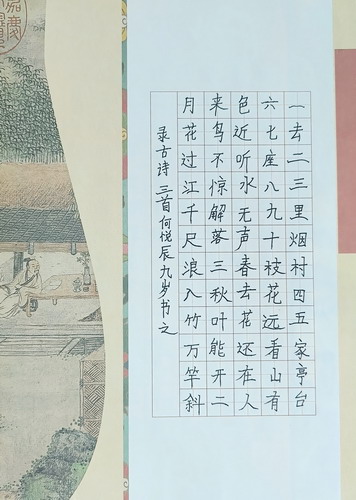 一去二三里烟村四五家亭台
六七座八九十枝花远看山有
色近听水无声春去花还在人
来鸟不惊解落三秋叶能开二
月花过江千尺浪入竹万竿斜
录古诗三首何悦辰九岁书之